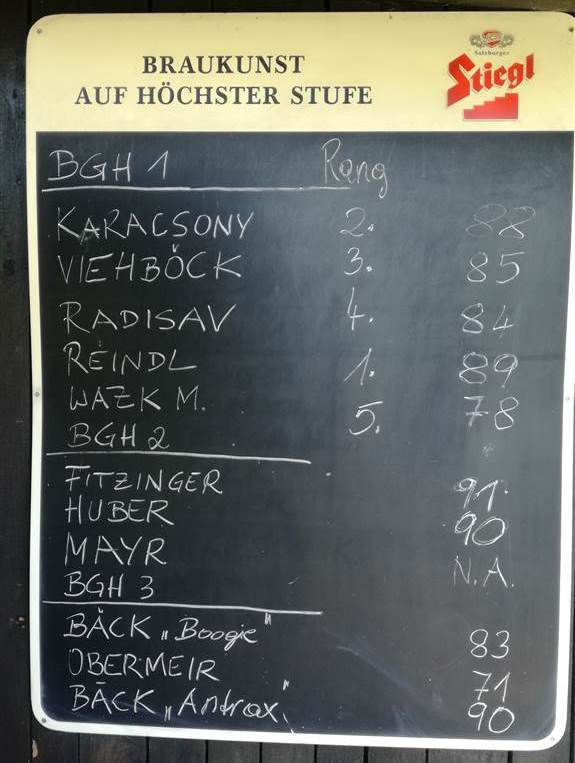 BRAUKUNST
AUF HÖCHSTER STUFE
Salzburger
Stiegl
BGH 1 Rang
KARACSONY 2. 88
VIEHBÖCK 3. 85
RADISAV 4. 84
REINDL 1. 89
WAZK M. 5. 78
BGH 2
FITZINGER 91.
HUBER 90
MAYR N.A.
BGH 3
BÄCK „Boogie" 83
OBERMEIR 71
BÄCK „Antrax" 90